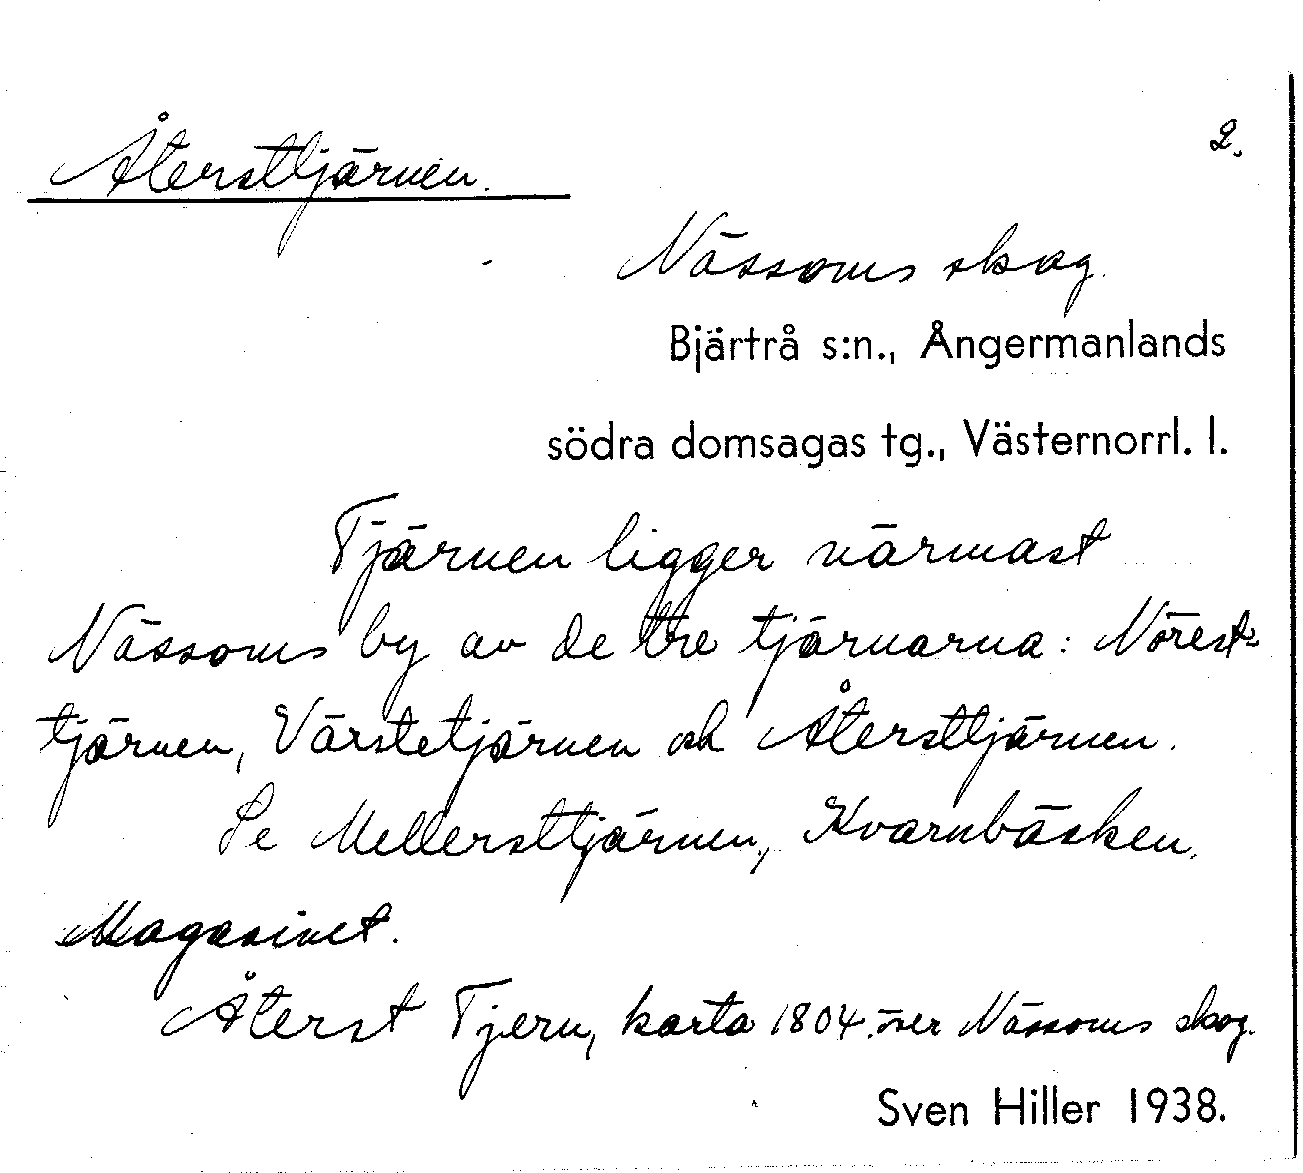 Återsttjärnen.
2.
Nässoms skog.
Bjärtrå s:n., Ångermanlands
södra domsagas tg., Västernorrl. l.
Tjärnen ligger närmast
Nässoms by av de tre tjärnarna: Nörest-
tjärnen, Värstetjärnen och Återsttjärnen.
Se Mellersttjärnen, Kvarnbäcken,
Magasinet.
Återst Tjern, karta 1804 över Nässoms skog.
Sven Hiller 1938.